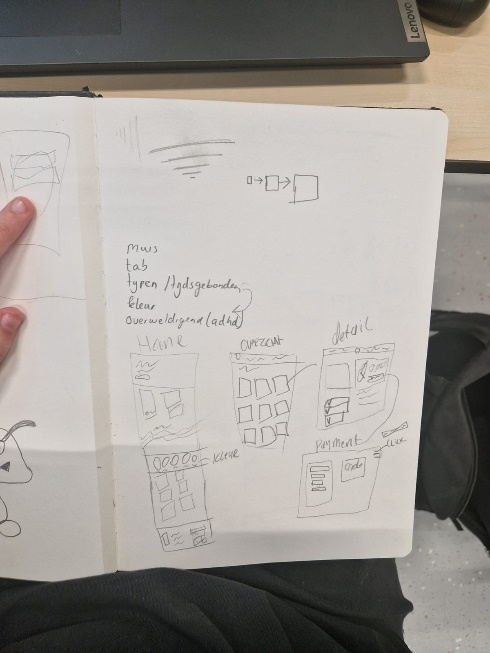 Lenovo
muis
tab
typen / tijdsgebonden
kleur
overweldigend (adhd)
Home
overzicht
detail
kleur
Payment